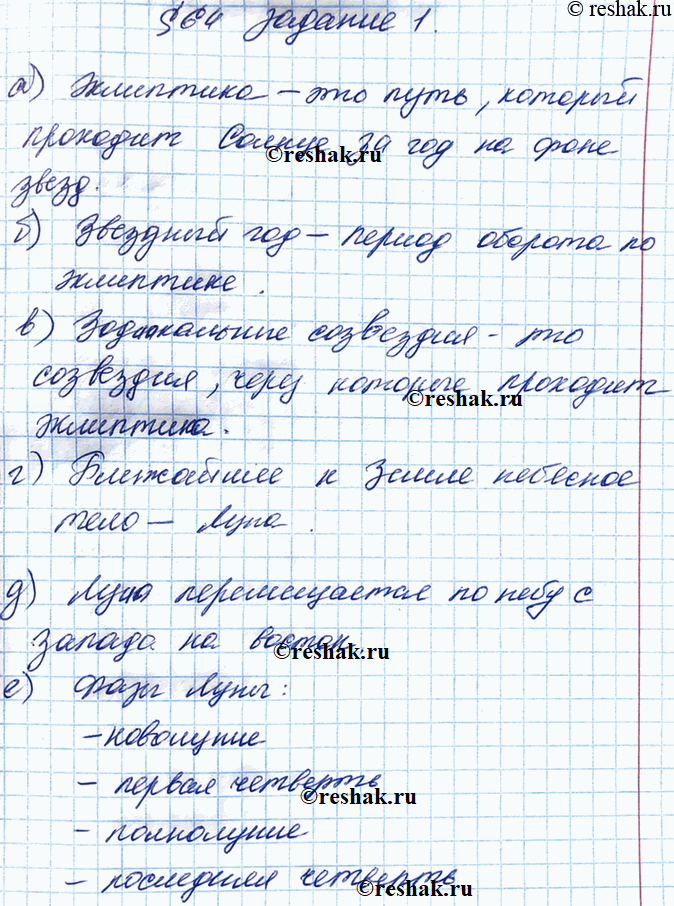 © reshak.ru
§64 Задание 1.
а) Эклиптика – это путь, который
проходит Солнце за год на фоне
© reshak.ru
звезд.
б) Звездный год – период оборота по
эклиптике.
в) Зодиакальные созвездия - это
созвездия, через которые проходит
© reshak.ru
эклиптика.
г) Ближайшее к Земле небесное
тело – Луна.
д) Луна перемещается по небу с
запада на восток
© reshak.ru
е) Фазы Луны:
– новолуние
– первая четверть
© reshak.ru
– полнолуние
– последняя четверть
© reshak.ru